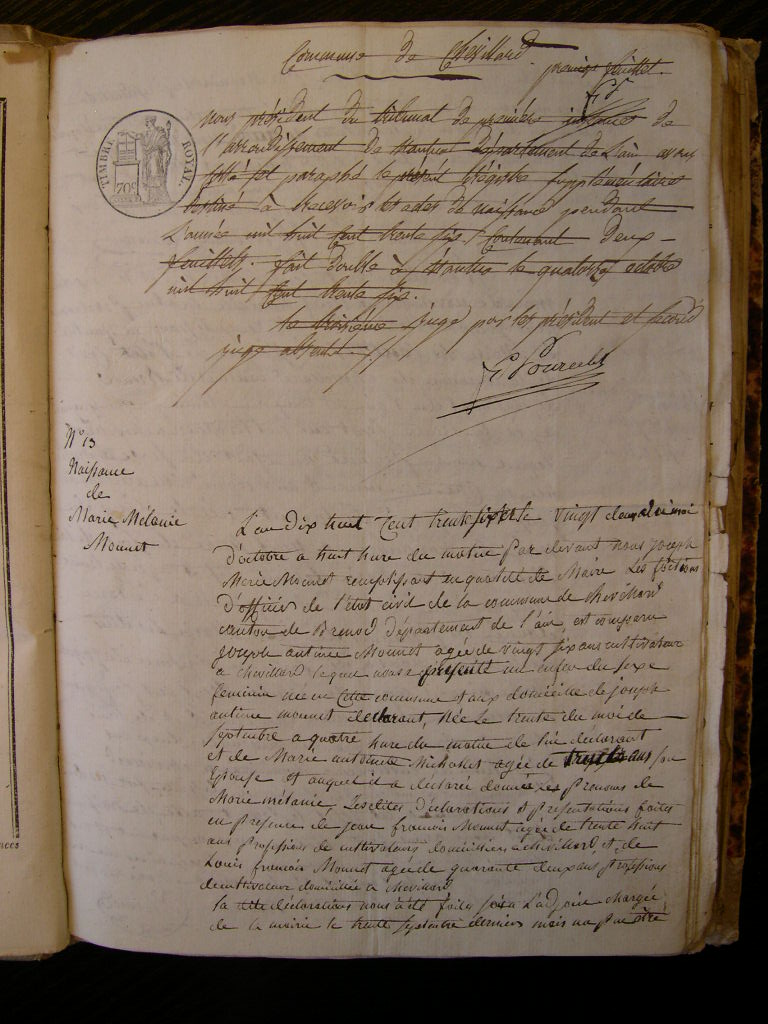 Commune de Chevillard.
premier feuillet.
TIMBRE ROYAL.
70c
nous président du tribunal de première instance de
l'arrondissement de Nantua Département de l'ain avons
côté et paraphé le présent Régistre supplémentaire
destiné à recevoir les actes de naissance pendant
L'année mil huit cent trente six. Contenant deux
feuillets. fait double à Nantua le quatorze octobre
mil huit cent trente six.
le troisième juge pour les président et second
juge absents.
N° 13
Naissance
de
Marie Mélanie
Monnet
L'an dix huit Cent trente six et le vingt deux du moi
D'octobre a huit hure du matin par devant nous joseph
Marie Monnet remplissant en qualité de Maire Les fonctions
D'officier de l'état civil de la commune de chevillard
canton de Brenod Département de l'ain, est comparu
joseph antoine Monnet agée de vingt six ans cultivateur
a chevillard lequel nous a présenté un enfan du sexe
féminin né en Cette commune et aux domicille de joseph
antoine monnet declarant, Née Le trente du moi de
septembre a quatre hure du matin de lui declarant
et de Marie antoinette Michalet agée de trente ans son
Epouse et auquel il a declarée donnée les prenoms de
Marie mélanie, Lesdites Déclarations et présentations faites
en présence de jean françois Monnet agée de trente huit
ans Professions de cultivateurs domiciliés a chevillard et de
Louis francois Monnet agée de quarante deux ans professions
de cultivateur domicilié a chevillard
la dite déclarations nous a été faite a Ladjoin chargée
de la mairie le trente septembre dernier mais na pue être